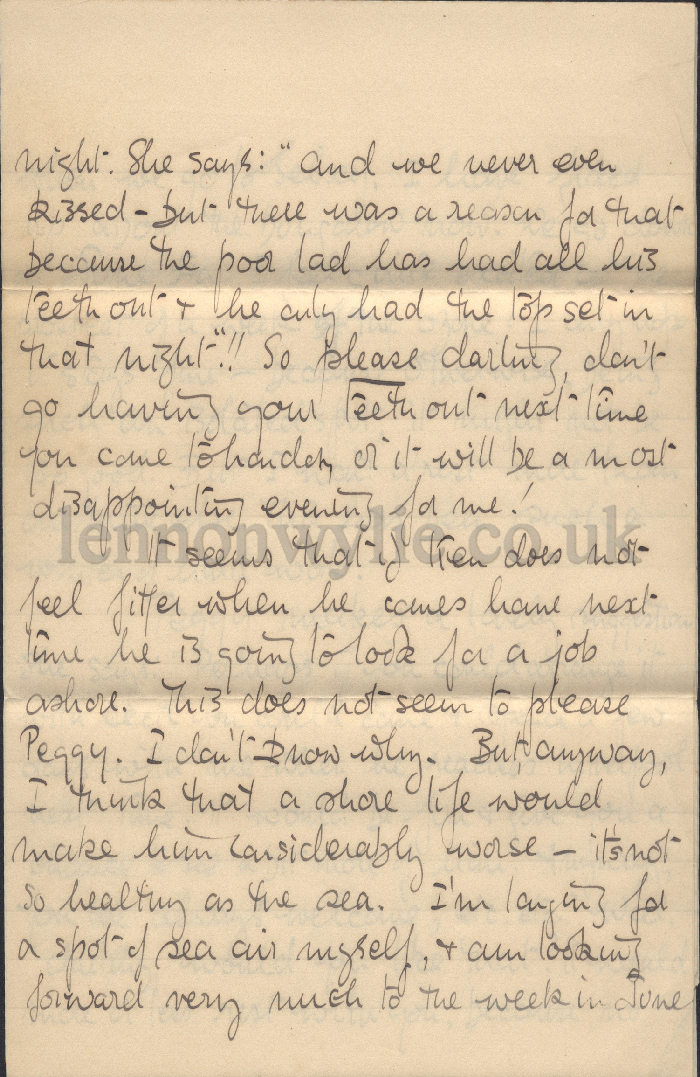 night. She says: "and we never even
kissed - but there was a reason for that
because the poor lad has had all his
teeth out & he only had the top set in
that night"!! So please darling, don't
go having your Teeth out next time
you come to London, or it will be a most
disappointing evening for me!
lennonwylie.co.uk
It seems that if Ken does not
feel fitter when he comes home next
time he is going to look for a job
ashore. This does not seem to please
Peggy. I don't know why. But, anyway,
I think that a shore life would
make him considerably worse - it's not
so healthy as the sea. I'm longing for
a spot of sea air myself, & am looking
forward very much to the week in June